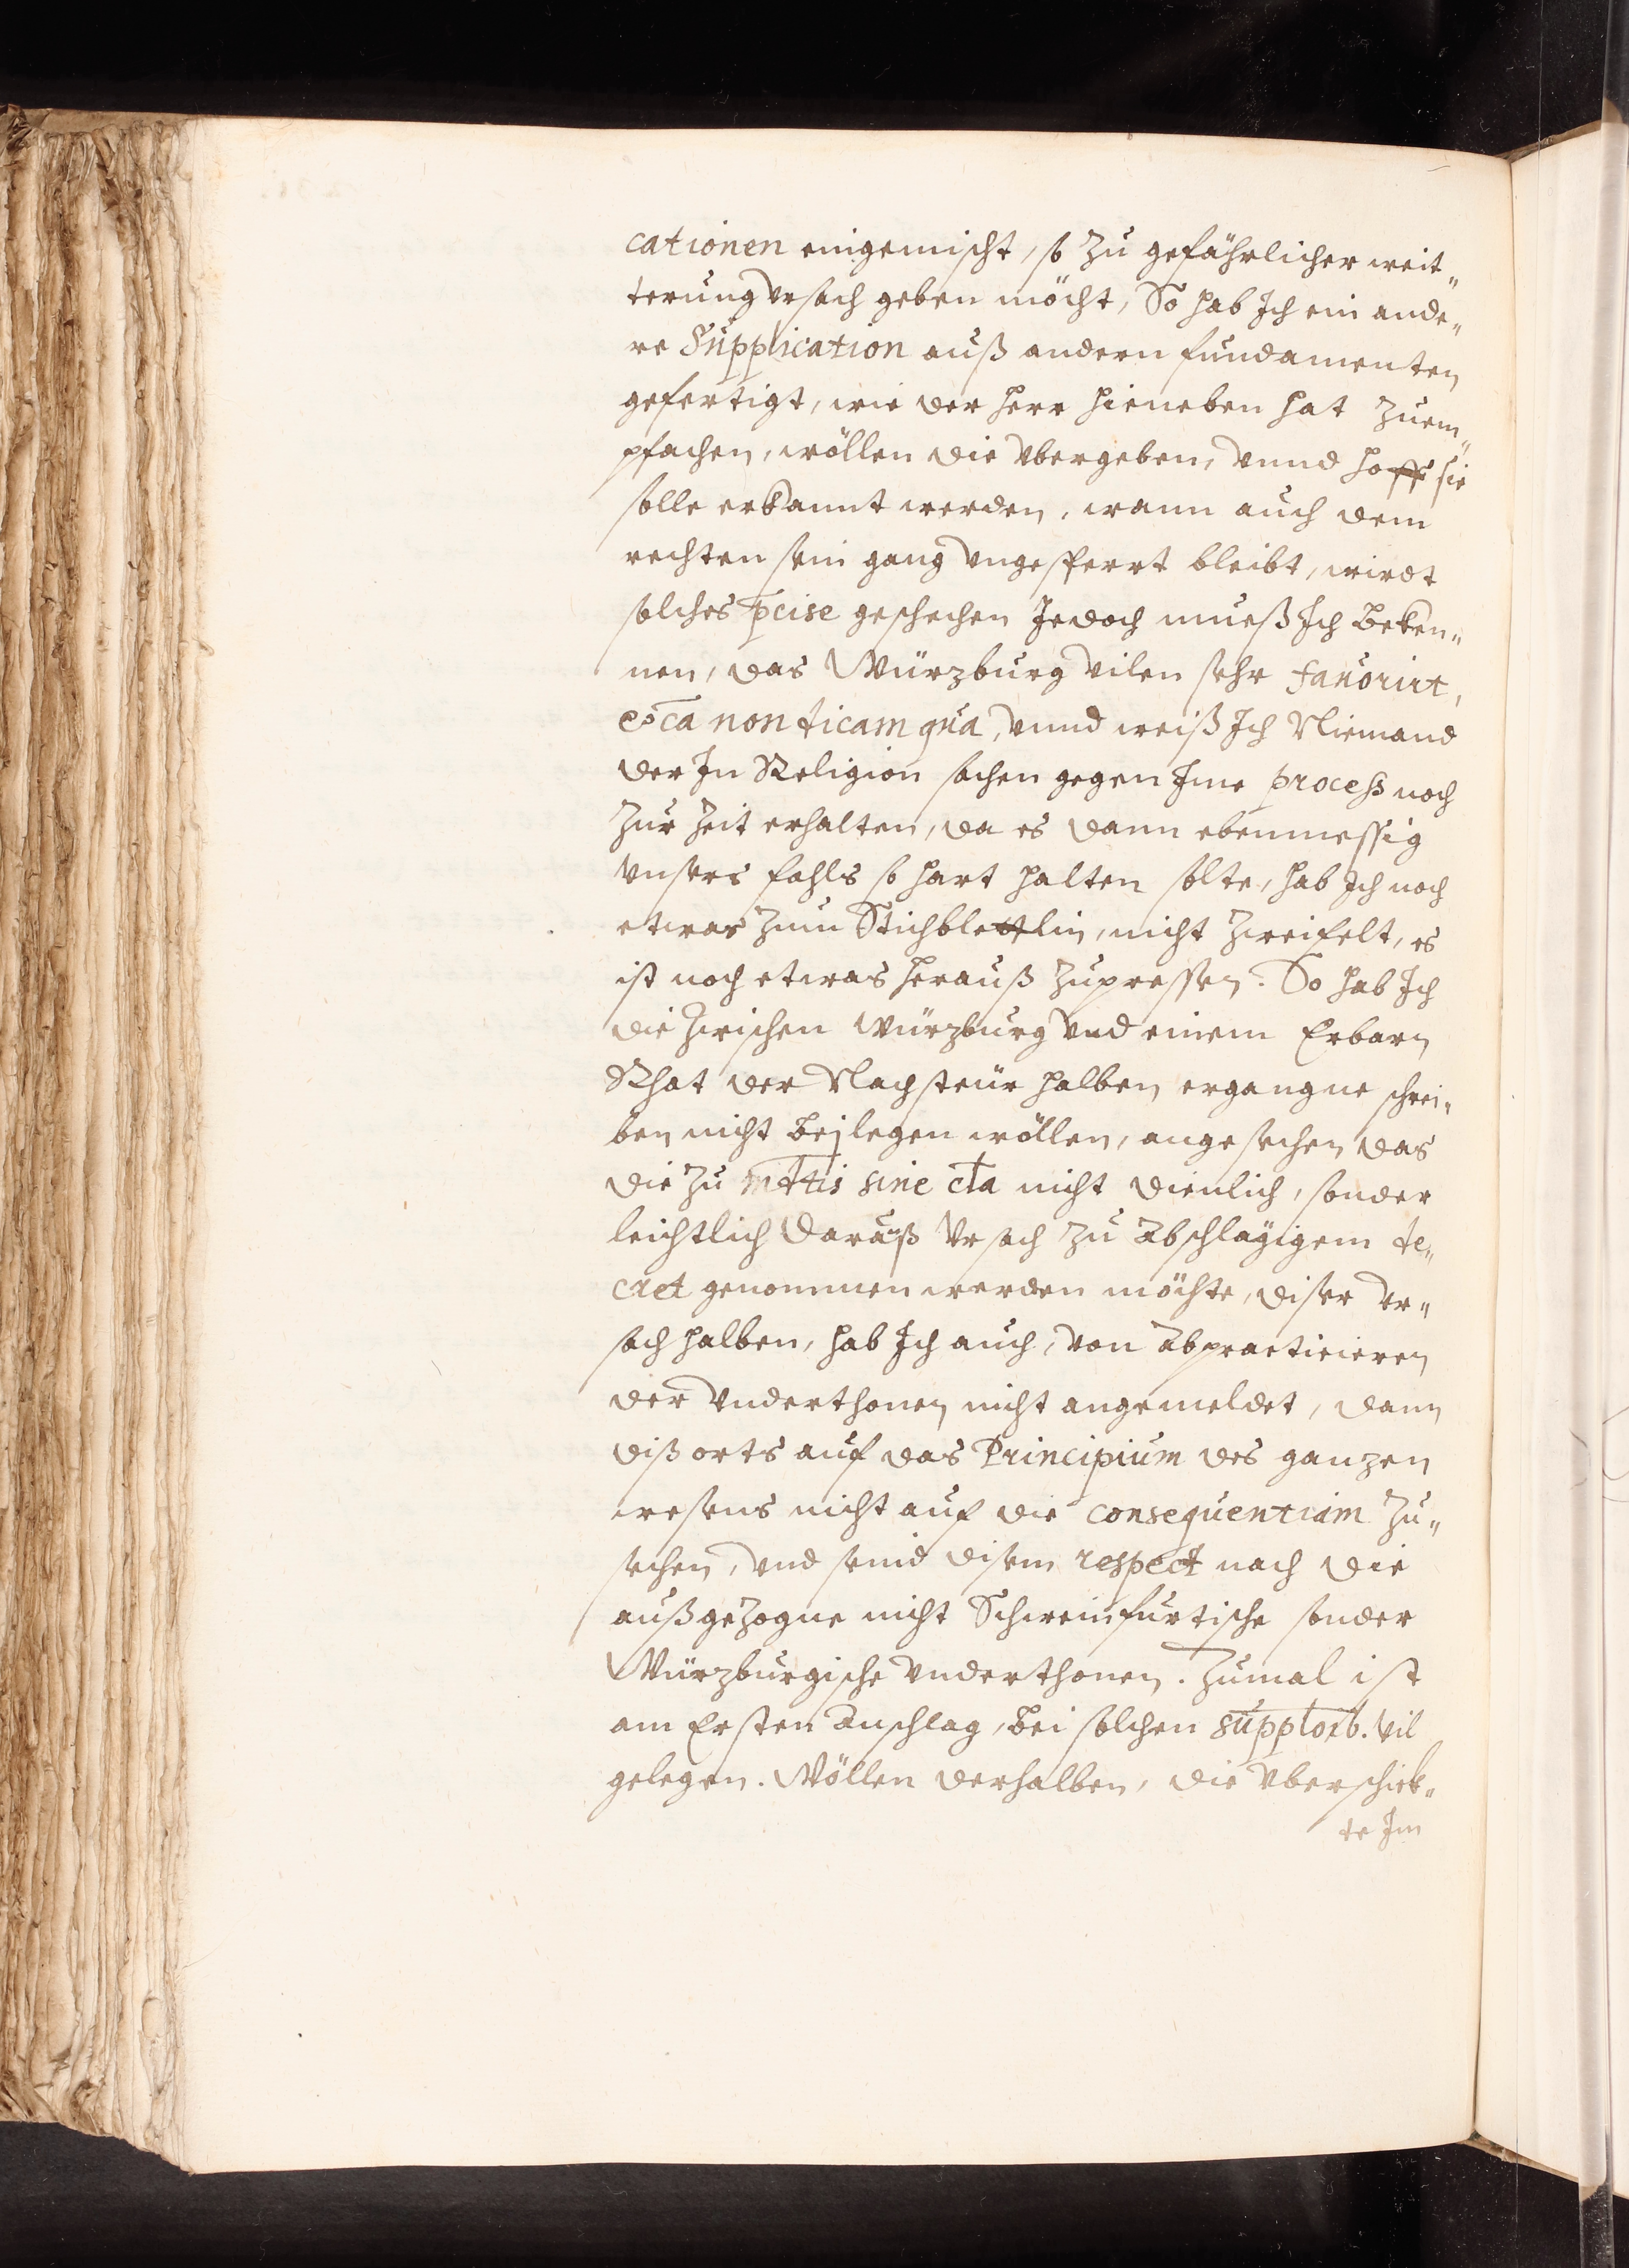 cationen eingemischt, so zu gefährlicher weit„
terung vrsach geben möcht, So hab Ich ein ande„
re Supplication auß andern fundamenten
gefertigt, wie der herr hieneben hat zuem„
pfachen, wöllen die vbergeben, vnnd hoff sie
solle erkannt werden, wann auch dem
rechten sein gang vngesperrt bleibt, wirdt
solches pcise geschechen Jedoch mueß Ich beken„
nen, das Würzburg vilen sehr fauorirt,
ca non dicam qua, vnnd weiß Ich Niemand
der In Religion sachen gegen Ime process noch
zur Zeit erhalten, da es dann ebenmessig
vnsers fahls so hart halten solte, hab Ich noch
etwas zum Stichblettlin, nicht zweifelt, es
ist noch etwas herauß zupressen. So hab Ich
die zwischen Würzburg vnd einem Erbarn
Rhat der Nachsteür halben ergangne schrei„
ben nicht beylegen wöllen, angesechen das
die zu mttis sine cla nicht dienlich, sonder
leichtlich darauß vrsach zu abschlägigem de„
cret genommen werden möchte, diser vr„
sach halben, hab Ich auch, von abpracticieren
der vnderthonen nicht angemeldet, dann
diß orts auf das Principium des ganzen
wesens nicht auf die consequentiam zu„
sechen, vnd seind disem respect nach die
außgezogne nicht Schweinfurtische sonder
Würzburgische vnderthonen. Zumal ist
am Ersten anschlag, bei solchen supptorb. vil
gelegen. Wöllen derhalben, die vberschick„
te Im